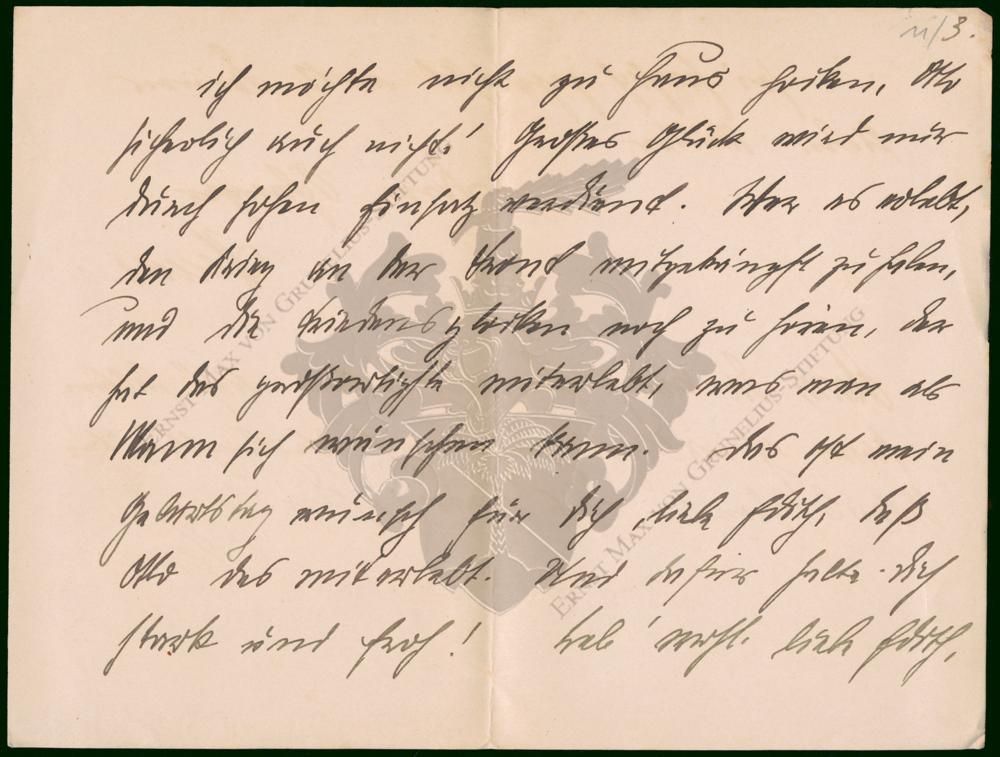 11/3.
ich möchte nicht zu Haus hocken, Otto
sicherlich auch nicht! Großes Glück wird nur
durch hohen Einsatz verdient. Wer es erlebt,
den Krieg an der Front mitgekämpft zu haben,
und die Friedensglocken noch zu hören, der
hat das großartigste miterlebt, was man als
Mann sich wünschen kann. Das ist mein
Geburtstag wunsch für Dich, liebe Edith, daß
Otto das miterlebt. Und dafür halte Dich
stark und froh! Leb' wohl. liebe Edith,
ERNST MAX VON GRUNELIUS-STIFTUNG
ERNST MAX VON GRUNELIUS-STIFTUNG